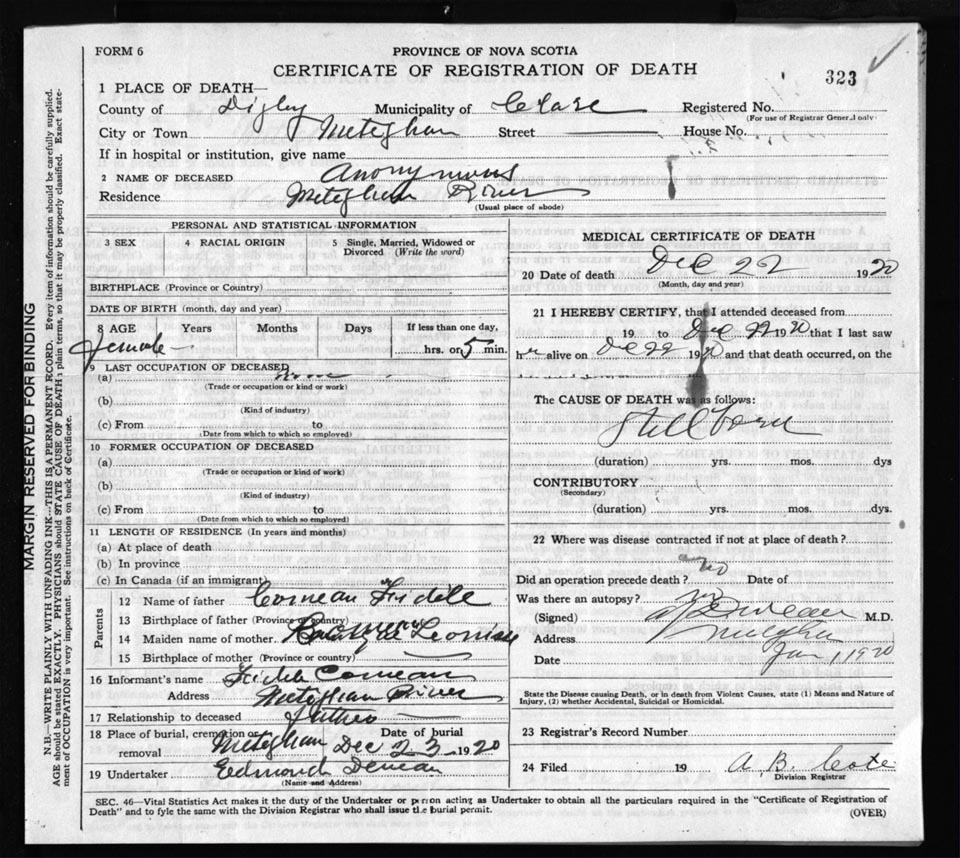 FORM 6
PROVINCE OF NOVA SCOTIA
CERTIFICATE OF REGISTRATION OF DEATH
323
1 PLACE OF DEATH—
County of Digby Municipality of Clare Registered No.
(For use of Registrar General only)
City or Town Meteghan Street House No.
If in hospital or institution, give name
2 NAME OF DECEASED Anonymous
Residence Meteghan River
(Usual place of abode)
PERSONAL AND STATISTICAL INFORMATION
3 SEX 4 RACIAL ORIGIN 5 Single, Married, Widowed or Divorced (Write the word)
BIRTHPLACE (Province or Country)
DATE OF BIRTH (month, day and year)
8 AGE Years Months Days If less than one day,
female hrs. or 5 min.
9 LAST OCCUPATION OF DECEASED
(a) none
(Trade or occupation or kind or work)
(b)
(Kind of industry)
(c) From to
(Date from which to which so employed)
10 FORMER OCCUPATION OF DECEASED
(a)
(Trade or occupation or kind of work)
(b)
(Kind of industry)
(c) From to
(Date from which to which so employed)
11 LENGTH OF RESIDENCE (In years and months)
(a) At place of death
(b) In province
(c) In Canada (if an immigrant)
Parents
12 Name of father Comeau Fidele
13 Birthplace of father (Province or Country)
14 Maiden name of mother Leonise
15 Birthplace of mother (Province or country)
16 Informant's name Fidele Comeau
Address Meteghan River
17 Relationship to deceased father
18 Place of burial, cremation or removal Meteghan Date of burial Dec 23 1920
19 Undertaker Edmond Deveau
(Name and Address)
MEDICAL CERTIFICATE OF DEATH
20 Date of death Dec 22 1920
(Month, day and year)
21 I HEREBY CERTIFY, that I attended deceased from
19 to Dec 22 1920 that I last saw
her alive on Dec 22 1920 and that death occurred, on the
The CAUSE OF DEATH was as follows:
Stillborn
(duration) yrs. mos. dys
CONTRIBUTORY
(Secondary)
(duration) yrs. mos. dys.
22 Where was disease contracted if not at place of death?
Did an operation precede death? no Date of
Was there an autopsy?
(Signed) M.D.
Address Meteghan
Date Jan 1, 1920
State the Disease causing Death, or in death from Violent Causes, state (1) Means and Nature of
Injury, (2) whether Accidental, Suicidal or Homicidal.
23 Registrar's Record Number
24 Filed 19 A. B.
Division Registrar
SEC. 46—Vital Statistics Act makes it the duty of the Undertaker or person acting as Undertaker to obtain all the particulars required in the "Certificate of Registration of
Death" and to fyle the same with the Division Registrar who shall issue the burial permit.
(OVER)
MARGIN RESERVED FOR BINDING
N.B.—WRITE PLAINLY WITH UNFADING INK—THIS IS A PERMANENT RCORD. Every item of information should be carefully supplied.
AGE should be stated EXACTLY. PHYSICIANS should STATE CAUSE OF DEATH in plain terms, so that it may be properly classified. Exact state-
ment of OCCUPATION is very important. See instructions on back of Certificate.